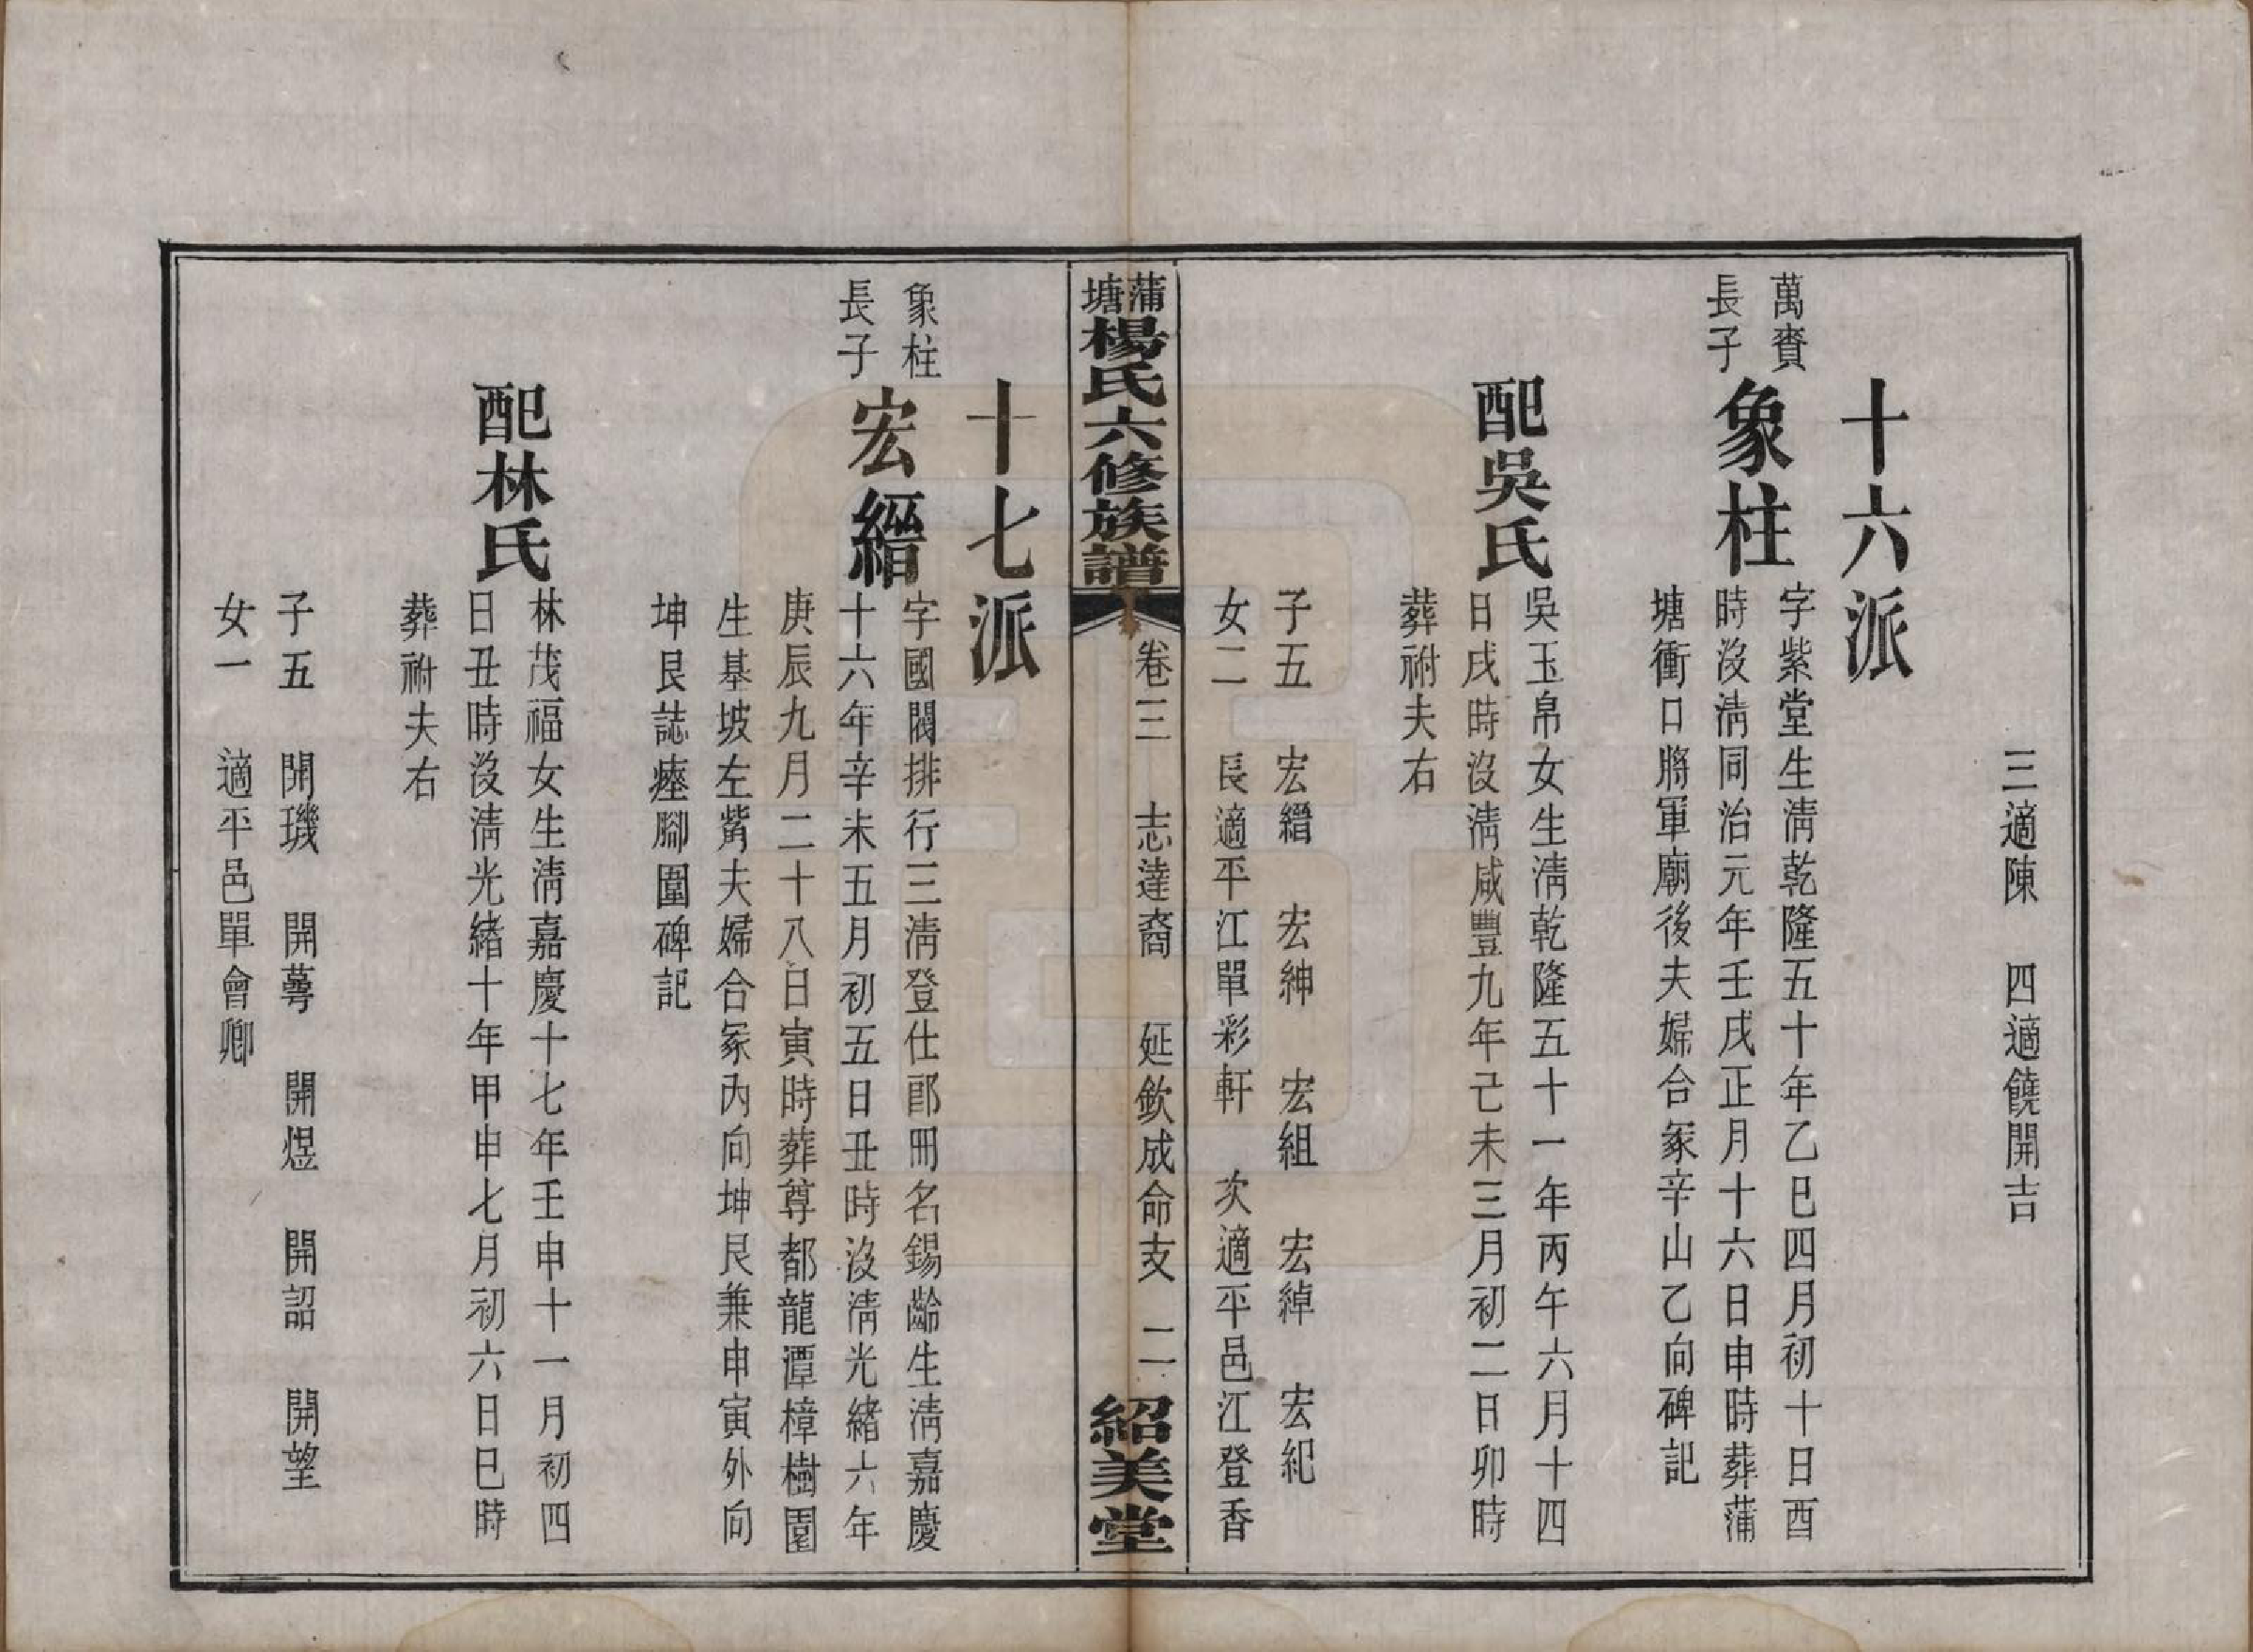 三適陳　四適饒開吉
十六派
萬賚
長子
象柱
字紫堂生淸乾隆五十年乙巳四月初十日酉
時沒淸同治元年壬戌正月十六日申時葬蒲
塘衝口將軍廟後夫婦合冢辛山乙向碑記
配吳氏
吳玉帛女生淸乾隆五十一年丙午六月十四
日戌時沒淸咸豐九年己未三月初二日卯時
葬祔夫右
子五　宏縉　宏紳　宏組　宏綽　宏紀
女二　長適平江單彩軒　次適平邑江登香
蒲塘楊氏六修族譜　卷三　志達裔　延欽成命支　二　紹美堂
十七派
象柱
長子
宏縉
字國閣排行三淸登仕郎冊名錫齡生淸嘉慶
十六年辛未五月初五日丑時沒淸光緒六年
庚辰九月二十八日寅時葬尊都龍潭樟樹園
生基坡左觜夫婦合冢內向坤艮兼申寅外向
坤艮誌瘞腳圍碑記
配林氏
林茂福女生淸嘉慶十七年壬申十一月初四
日丑時沒淸光緒十年甲申七月初六日巳時
葬祔夫右
子五　開璣　開蕚　開煜　開詔　開望
女一　適平邑單會卿